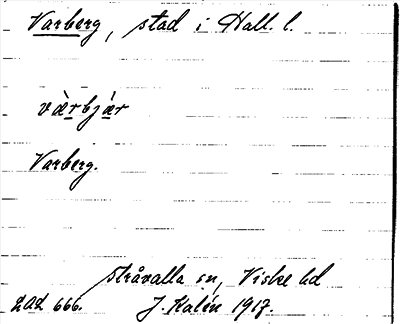 Varberg, stad i Hall. l.
vàrbjár
Varberg.
Stråvalla sn, Viske hd
LAL 666. J. Kalén 1917.